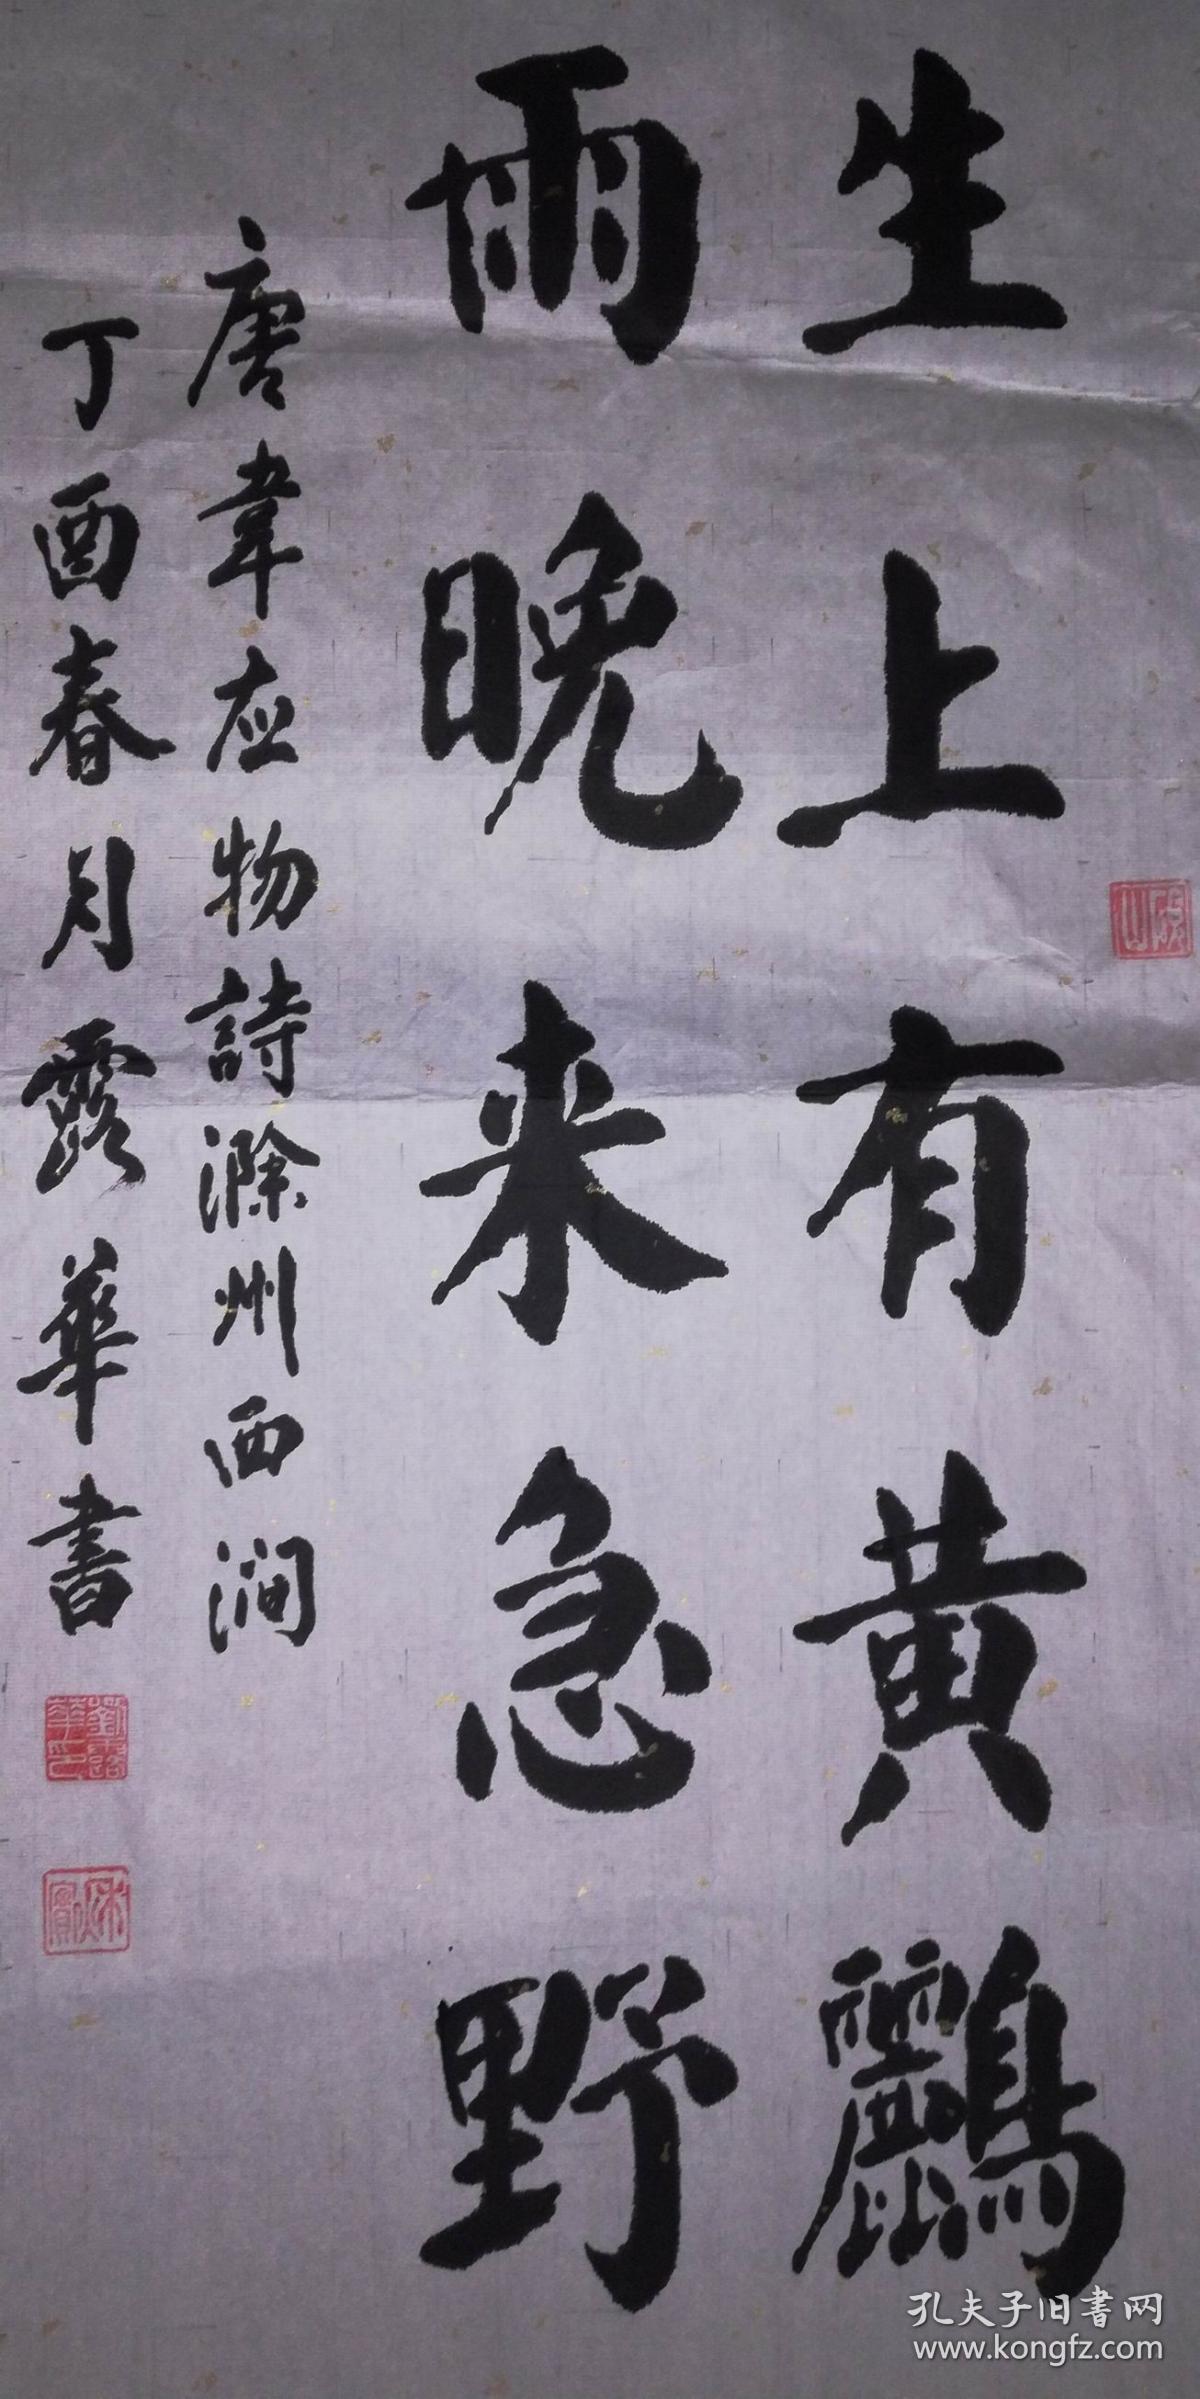 生上有黄鸝
雨晚来急野
唐韋应物詩滁州西涧
丁酉春月露華書
劉露華印
孔夫子旧書网
www.kongfz.com